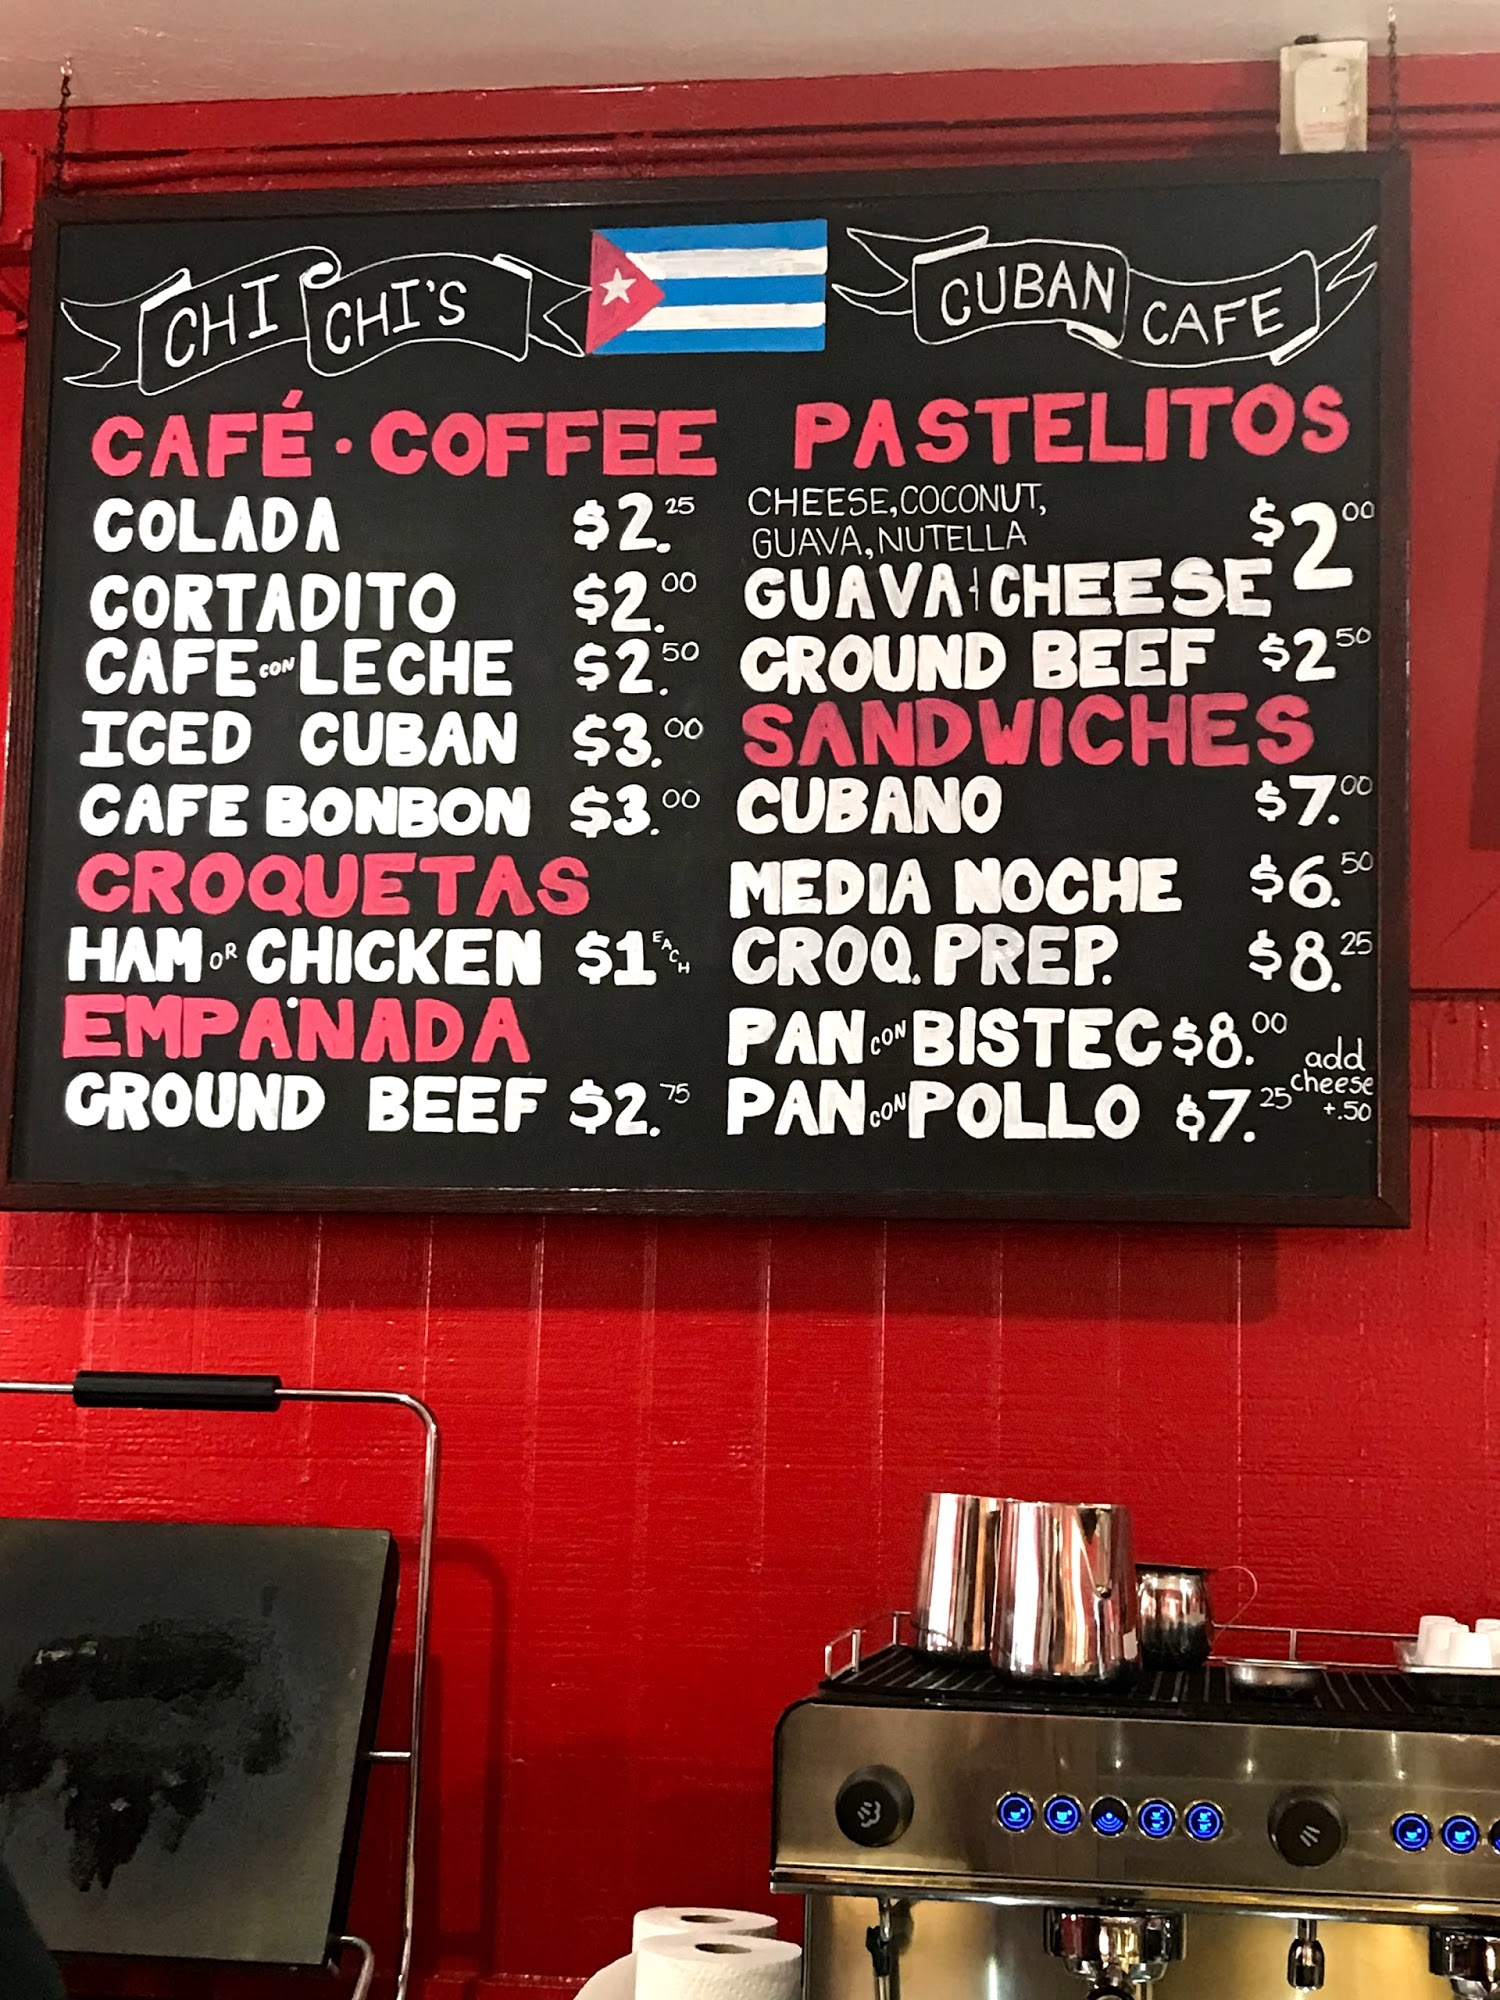 CHI CHI'S
CUBAN CAFE
CAFÉ · COFFEE
COLADA $2.25
CORTADITO $2.00
CAFE CON LECHE $2.50
ICED CUBAN $3.00
CAFE BONBON $3.00
CROQUETAS
HAM OR CHICKEN $1 EACH
EMPAÑADA
GROUND BEEF $2.75
PASTELITOS
CHEESE, COCONUT,
GUAVA, NUTELLA $2 00
GUAVA & CHEESE
GROUND BEEF $2 50
SANDWICHES
CUBANO $7.00
MEDIA NOCHE $6.50
CROQ. PREP. $8.25
PAN CON BISTEC $8.00
PAN CON POLLO $7.25
add
cheese
+.50